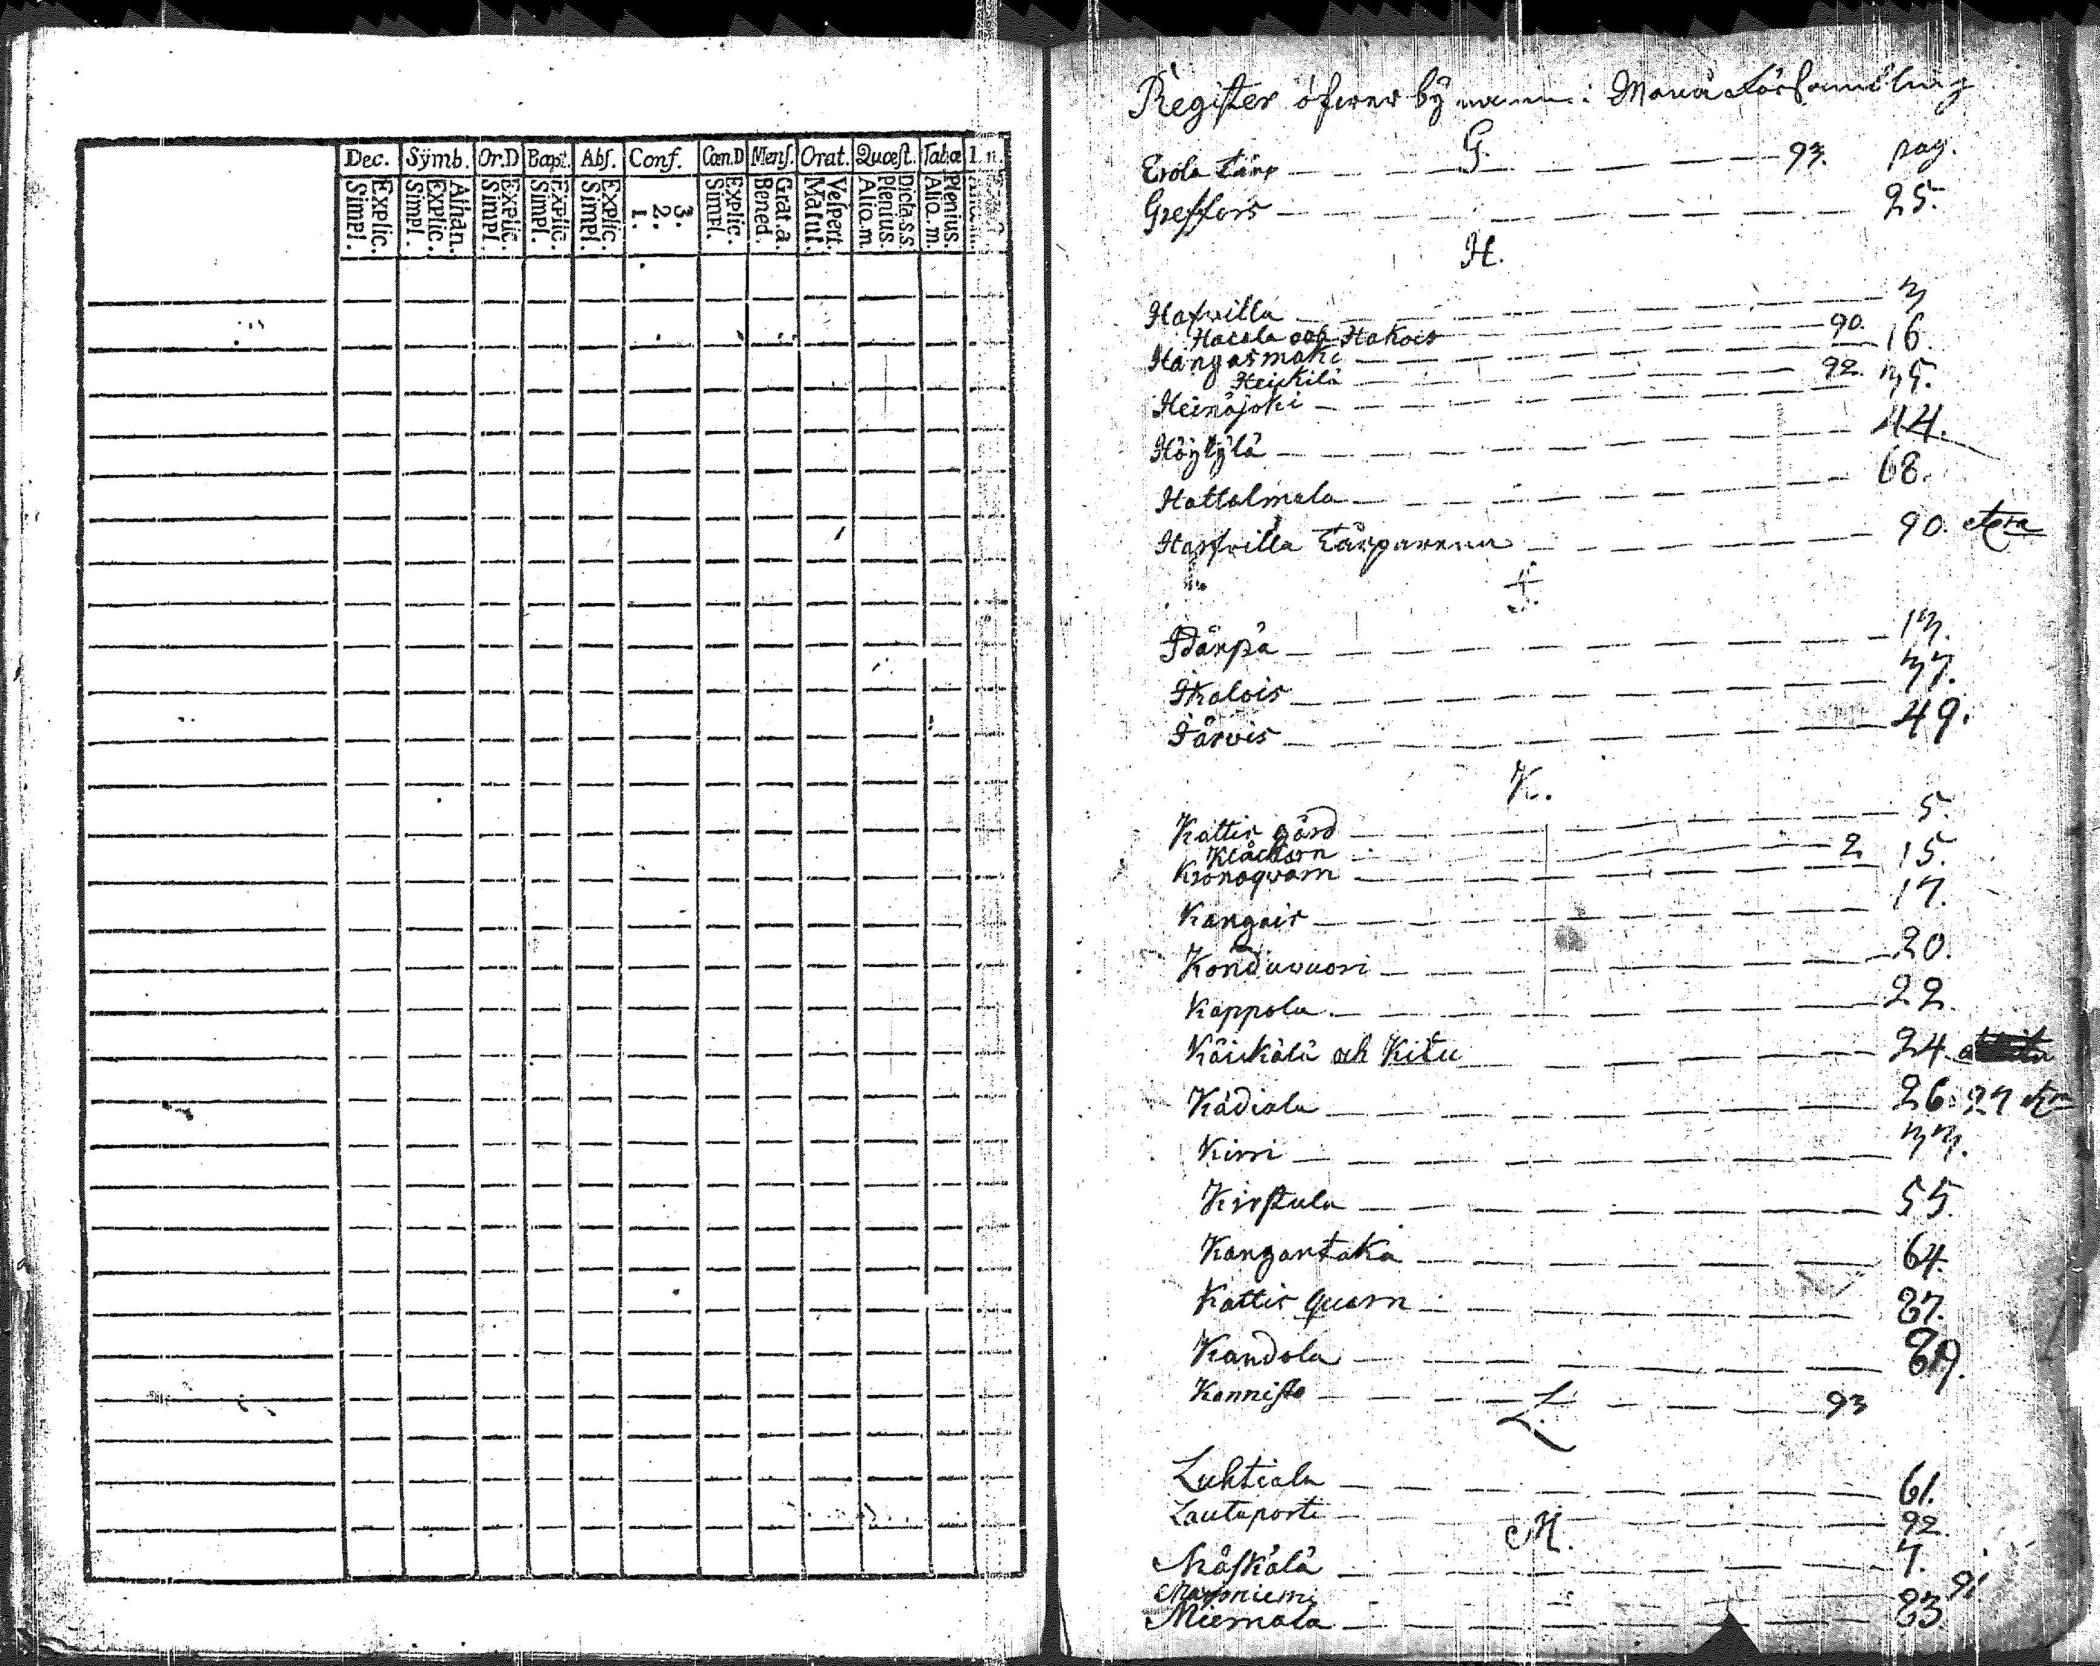 Dec. Sÿmb. Or.D Bapt. Abs. Conf. Cœn.D Mens. Orat. Quæst. Tabæ I. n.
Explic. Simpl. Athan. Explic. Simpl. Explic. Simpl. Explic. Simpl. Explic. Simpl. 3. 2. 1. Explic. Simpl. Grat.a Bened. Vespert. Matut. Dicta.s.s. Plenius. Aliq.m. Plenius. Aliq.m.
Register öfwer bÿ Försambling
G.
Erola Tårp 93. pag.
Greffors 25.
H.
Hafwilla 3
Hacala och Hakois 90.
Hangasmäki 16.
Heickilä 92.
Heinäjoki 35.
Höÿlÿlä 44.
Hattalmala 68.
Harfwilla Tårparenn 90. etc:ra
J.
Idänpä 13.
Ikalois 37.
Järvis 49.
K.
Kattis gård 5.
Klåckarn 2
Kronoqvarn 15.
Kangais 17.
Konduvuori 20.
Kappola 22.
Käickälä och Kitu 24.
Kädiala 26. 27 etc:ra
Kirri 33.
Kirstula 55.
Kangantaka 64.
Kattis quarn 87.
Kandola 89.
Kannisto 93
L.
Luhtiala 61.
Lautaporti 92.
M.
Mäskälä 7.
Marjoniemi 91
Miemala 83.